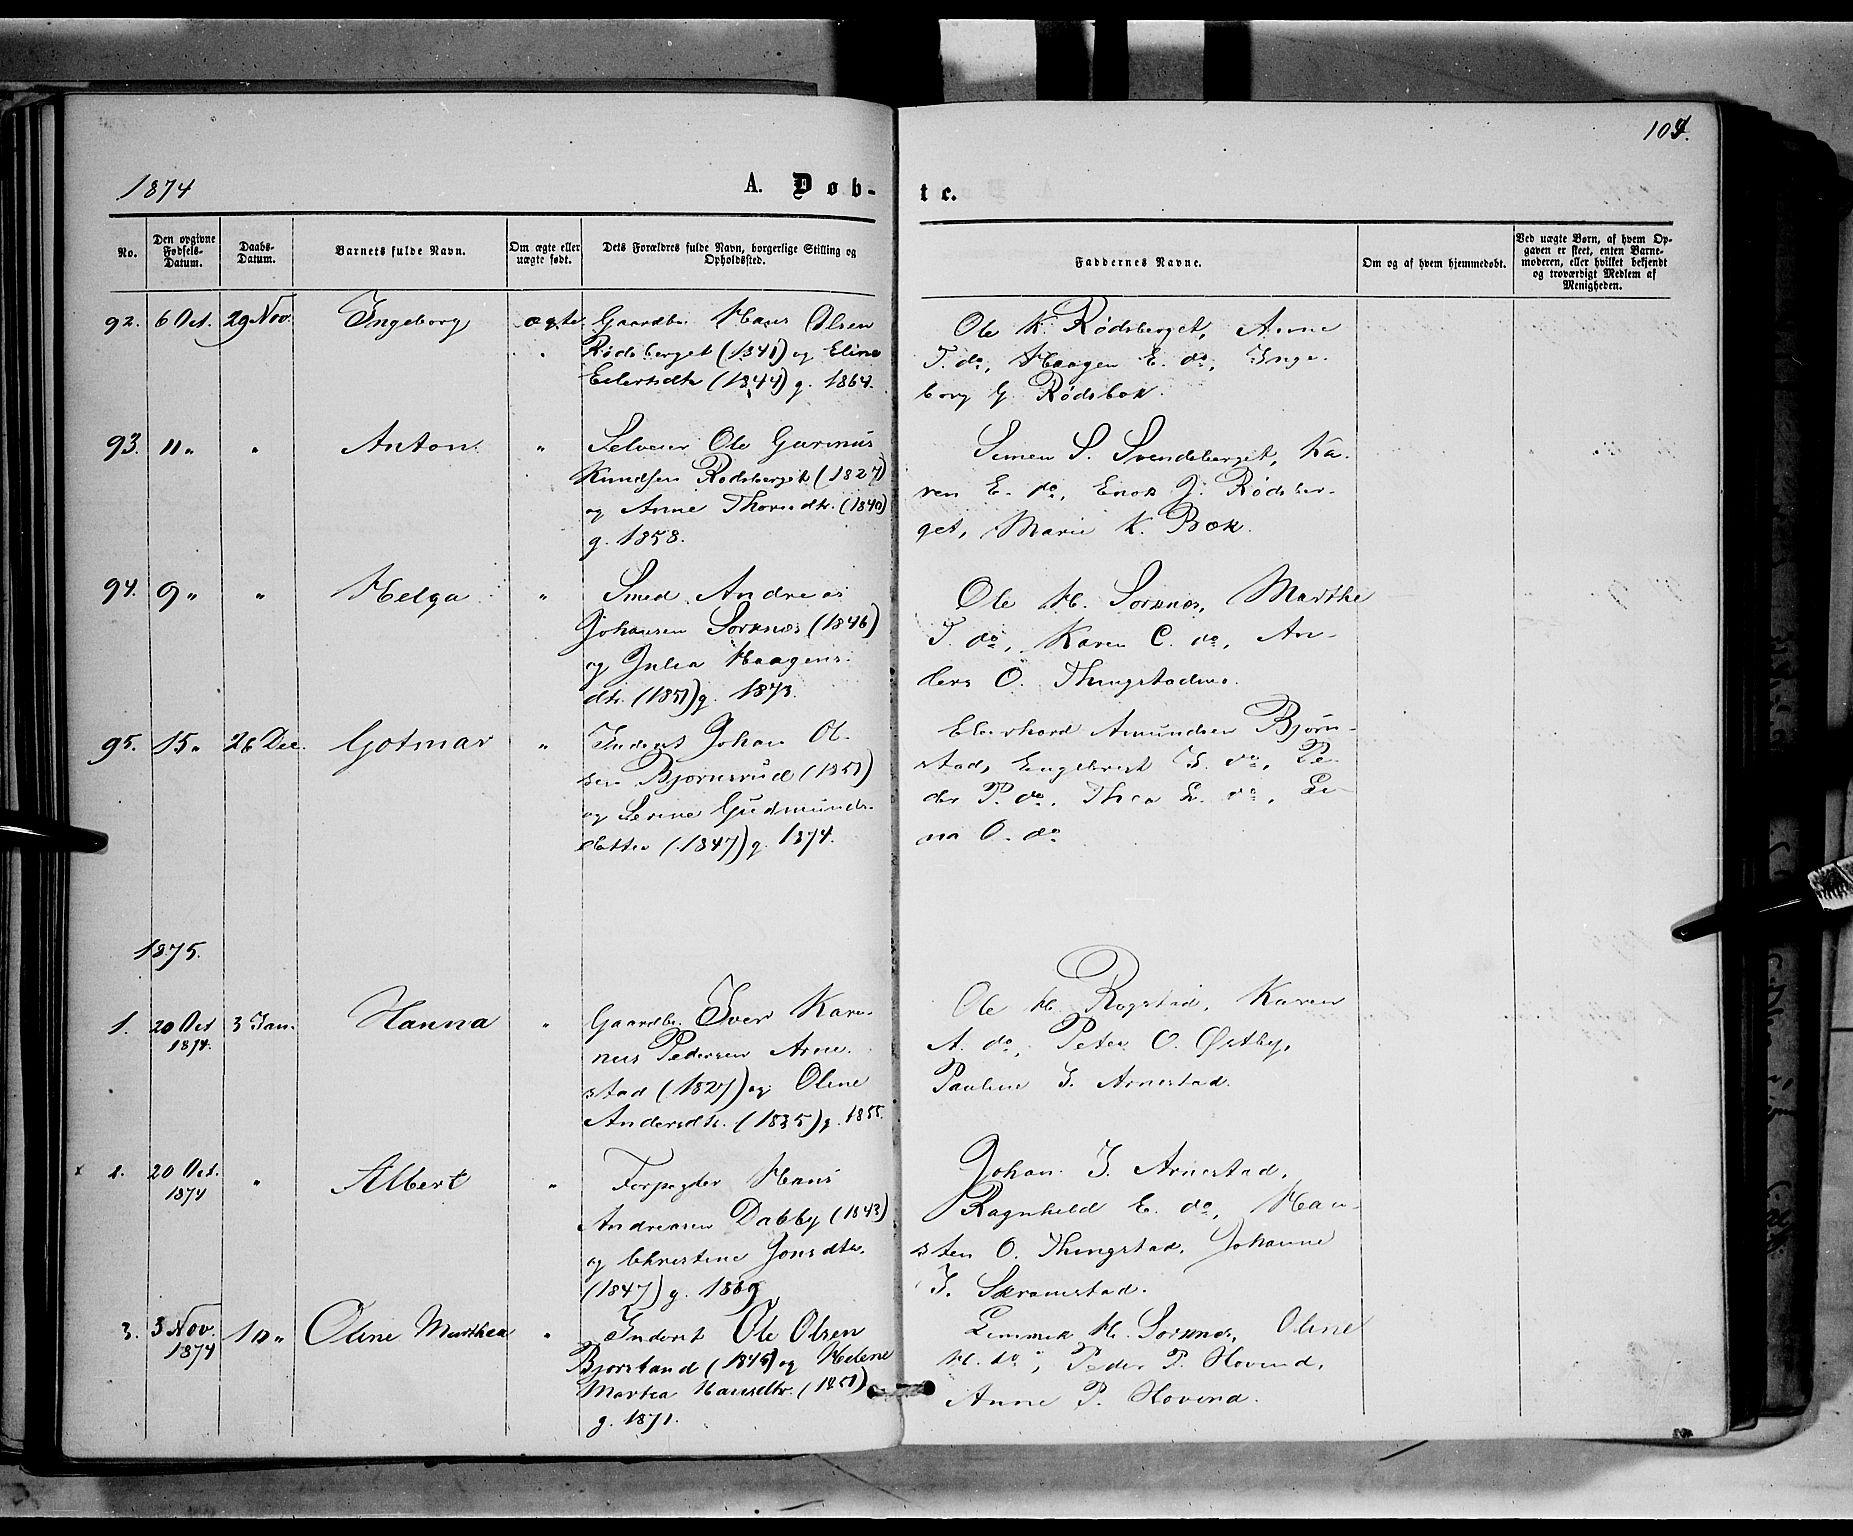 104.
1874
A. Døb-
te.
No.
Den opgivne Fødsels-Datum.
Daabs-Datum.
Barnets fulde Navn.
Om ægte eller uægte født.
Dets Forældres fulde Navn, borgerlige Stilling og Opholdssted.
Faddernes Navne.
Om og af hvem hjemmedøbt.
Ved uægte Børn, af hvem Op-
gaven er skeet, enten Barne-
moderen, eller hvilket bekjendt
og troværdigt Medlem af
Menigheden.
92. 6 Oct. 29 Nov. Ingeborg ægte Gaardbr. Hans Olsen
Rødsberget (1841) og Eline
Eilertsdtr (1844) g. 1864.
Ole K. Rødsberget, Anne
T. do, Haagen E. do, Inge-
borg G. Rødsbak.
93. 11 " " Anton. " Selveier Ole Gurinius
Knudsen Rødsberget (1827)
og Anne Thorsdtr. (1840)
g. 1858.
Simen S. Svendsberget, Ka-
ren E. do, Enok J. Rødsber-
get, Marie K. Bæk.
94. 9 " " Helga " Smed Andreas
Johansen Sorknæs (1846)
og Julia Haagens-
dtr. (1851) g. 1873.
Ole H. Sorknæs, Marthe
T. do, Karen C. do, An-
ders O. Thingstadnæs.
95. 15 " 26 Dec. Gotmar " Inderst Johan Ol-
sen Bjørnsrud (1851)
og Serine Gudmunds-
datter (1847) g. 1874.
Amundsen Bjørn-
stad, Engebret I. do, Pe-
der P. do, Thea L. do, Li-
na O. do
1875.
1. 20 Oct 1874. 3 Jan. Hanna " Gaardbr. Iver Kari-
nus Pedersen Arne-
stad (1827) og Oline
Andersdtr. (1835) g. 1855.
Ole H. Rogstad, Karen
A. do, Peter O. Østby,
Pauline I. Arnestad.
x 2. 20 Oct. 1874 " Albert " Forpagter Hans
Andreasen Dabby (1843)
og Christine Jonsdtr.
(1847) g. 1869
Johan I. Arnestad,
Ragnhild E. do, Hau-
sten O. Thingstad, Johanne
I. Skramstad.
3. 3 Nov. 1874 10 " Oline Marthea " Inderst Ole Olsen
Bjørstand (1845) og Helene
Martea Hansdtr. (1851)
g. 1871.
H. Sorknæs, Oline
H. do, Peder P. Hovind,
Anne P. Hovind.